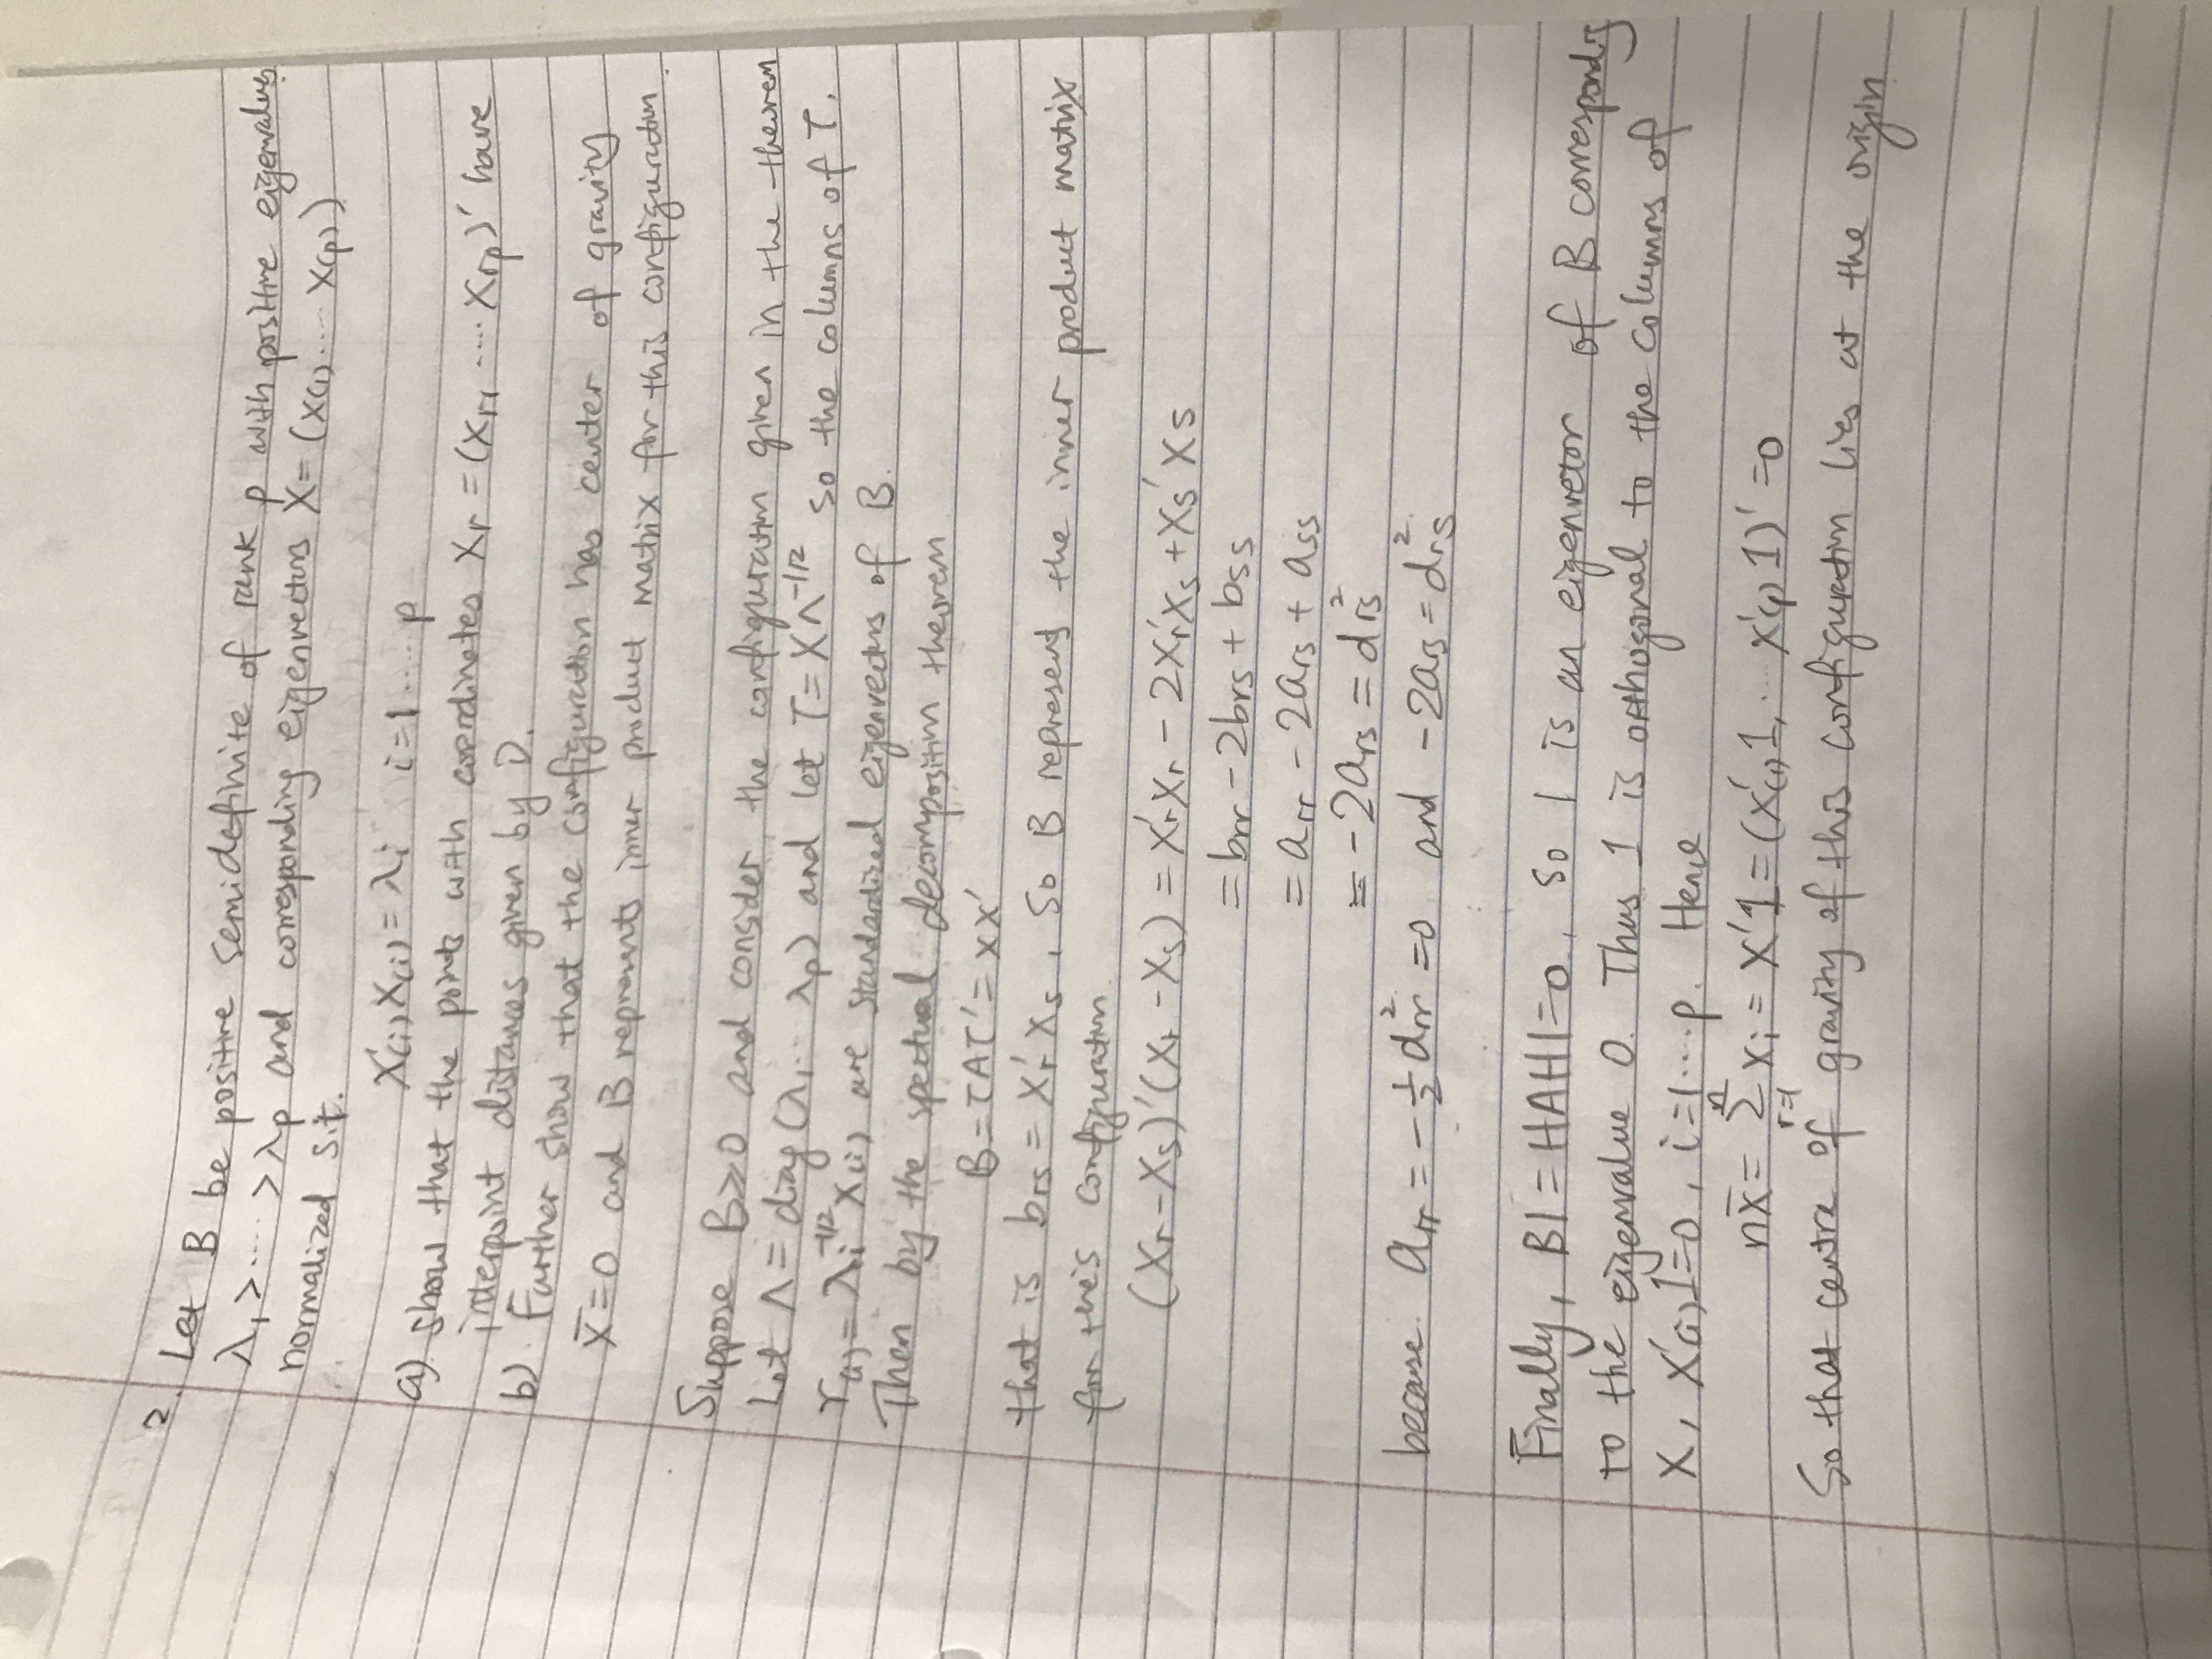 2. Let B be positive semidefinite of rank p with positive eigenvalues
λ₁ > ···· > λp and corresponding eigenvectors X = (X(1) ···· X(p))
normalized s.t.
X'(i) X(i) = λi   i=1 ····· p
a) show that the points with coordinates Xr = (Xr1 ···· Xrp)' have
interpoint distances given by D.
b). Further show that the configuration has center of gravity
X̄=0 and B represents inner product matrix for this configuration.
Suppose B≥0 and consider the configuration given in the theorem
Let Λ = diag(λ, ·· λp) and let T = XΛ^-1/2 so the columns of T,
r(i) = λi^-1/2 X(i) are standardized eigenvectors of B.
Then by the spectual decomposition theorem
B = TΛT' = XX'
that is brs = X'r Xs, So B represents the inner product matrix
for this configuration.
(Xr-Xs)'(Xr-Xs) = X'rXr - 2X'rXs + Xs'Xs
= brr - 2brs + bss
= arr - 2ars + ass
= -2ars = drs²
because. arr = -½drr² = 0 and -2ars = drs².
Finally, B1 = HAH1=0, So 1 is an eigenvetor of B corresponding
to the eigenvalue 0. Thus 1 is orthogonal to the columns of
X, X'(i)1=0, i=1····p. Hence
nx̄ = Σ(r=1 to n) xi = X'1 = (X'(1)1, ·· X'(p)1)' = 0
So that centre of gravity of this configuration lies at the origin